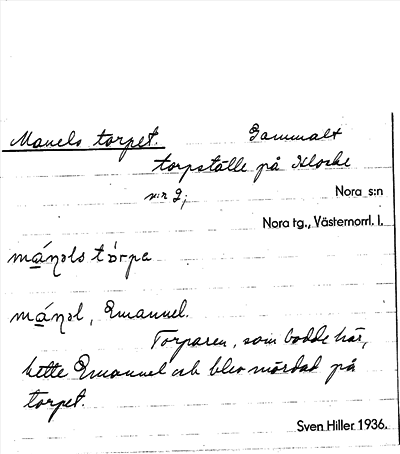 Manels torpet. Gammalt
torpställe på Klocke
n:r 2;
Nora s:n
Nora tg., Västernorrl. l.
má̠nəls tòrpa
má̠nəl, Emanuel.
Torparen, som bodde här,
hette Emanuel och blev mördad på
torpet.
Sven Hiller 1936.